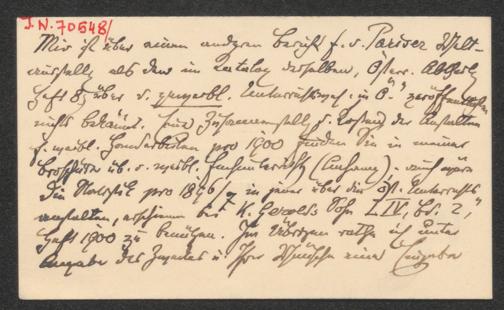 J.N. 70548/
Mir ist über einen andren Bericht f. d. Pariser Welt-
ausstellg als den im Katalog derselben, Österr. Abtheilg
Heft 5, über d. gewerbl. Unterrichtswes. in Ö. veröffentlichten
nichts bekannt. Eine Zusammenstellg d. der Anstalten
f. weibl. Handarbeiten pro 1900 finden Sie in meiner
Broschüre üb. d. weibl. (Anhang). auch wäre
die Statistik pro 1896/7 in jener über die öst. Unterrichts-
anstalten, erschienen bei K. Gerolds Sohn LIV, Bd. 2,
Heft 1900 zu benützen. Im Übrigen rathe ich unter
Angabe des Zweckes u. Ihrer Wünsche eine Eingabe